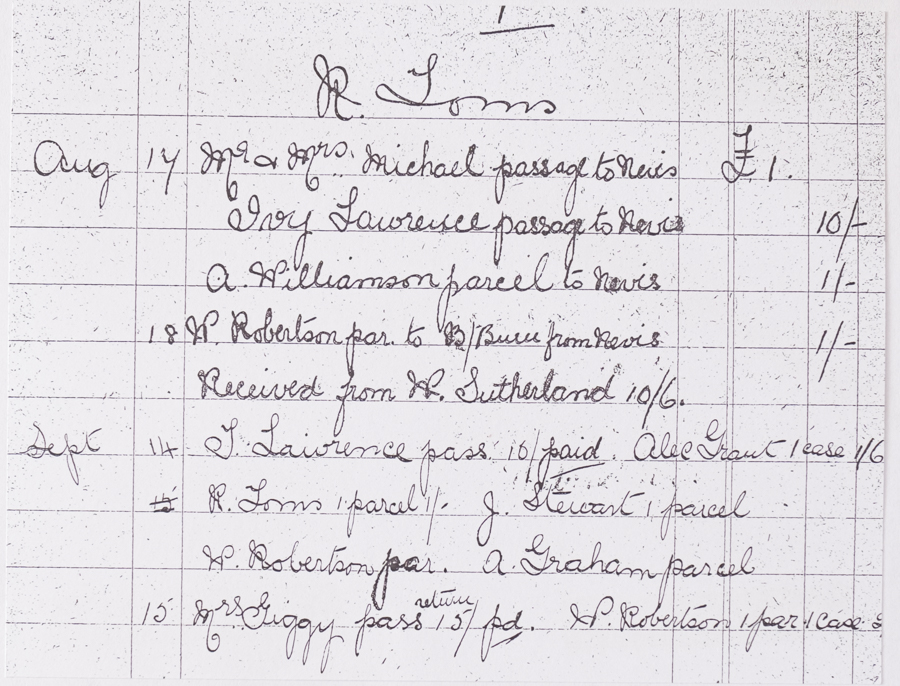 1
R. Toms
Aug 17 Mr & Mrs. Michael passage to Nevis £1.
Ivy Lawrence passage to Nevis 10/-
A. Williamson parcel to Nevis 1/-
18 W. Robertson par. to B/Buru from Nevis 1/-
Received from W. Sutherland 10/6.
Sept 14 T. Lawrence pass 10/ paid. Alec Grant 1 case 1/6
15 R. Toms 1 parcel 1/- J. Stewart 1 parcel
W. Robertson par. A. Graham parcel
return
15 Mrs Giggy pass 15/ pd. W. Robertson 1 par 1 case